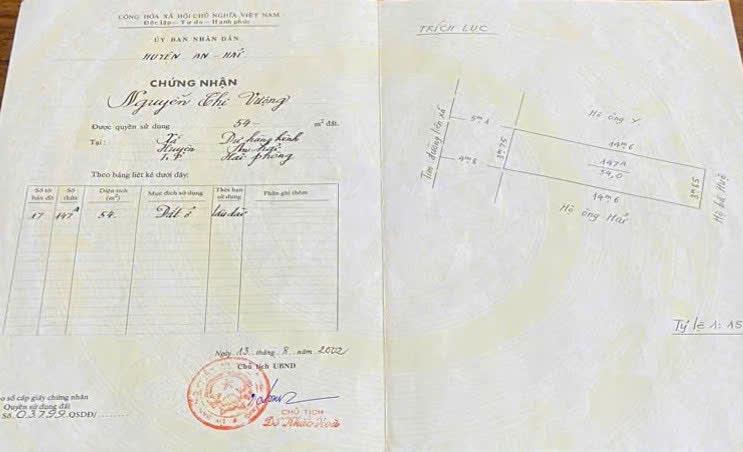 CỘNG HÒA XÃ HỘI CHỦ NGHĨA VIỆT NAM
Độc lập - Tự do - Hạnh phúc
ỦY BAN NHÂN DÂN
HUYỆN AN - HẢI
CHỨNG NHẬN
Nguyễn Thị Vượng
Được quyền sử dụng 54 - m² đất.
Tại: Xã Dư hàng kênh
Huyện An hải
T.P Hải phòng
Theo bảng liệt kê dưới đây:
Số tờ bản đồ Số thửa Diện tích (m²) Mục đích sử dụng Thời hạn sử dụng Phần ghi thêm
17 147A 54. Đất ở lâu dài
Ngày 13 tháng 8 năm 2002
Chủ tịch UBND
CHỦ TỊCH
Đỗ Khắc Hoà
o sổ cấp giấy chứng nhận
Quyền sử dụng đất
Số 03799 QSDĐ/
TRÍCH LỤC
Tim đường liên xã
5m4
4m8
3m75
Hộ ông Y
14m6
147A
54,0
14m6
3m65
Hộ ông Hải
Hộ bà Huệ
Tỷ lệ 1: 15